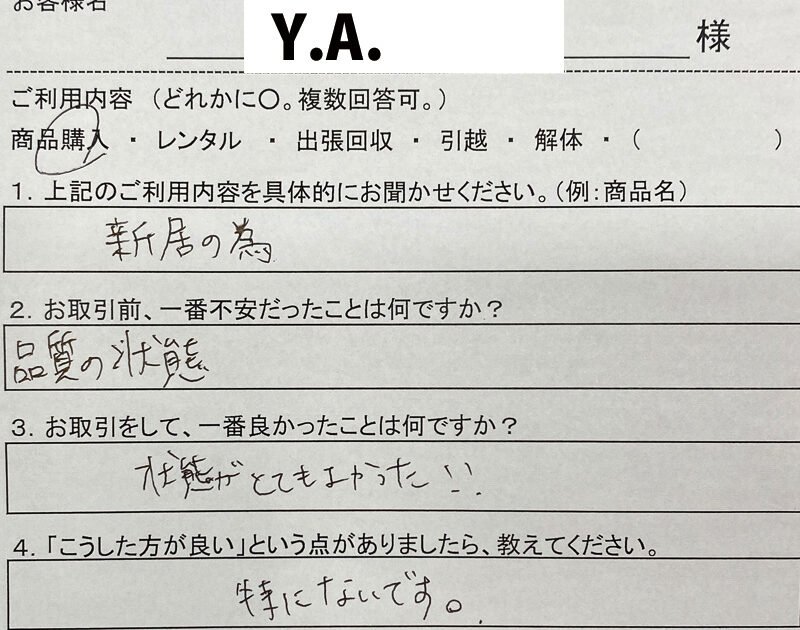 お客様名
Y.A. 様
ご利用内容 (どれかに〇。複数回答可。)
商品購入 ・ レンタル ・ 出張回収 ・ 引越 ・ 解体 ・( )
1. 上記のご利用内容を具体的にお聞かせください。(例:商品名)
新居の為
2. お取引前、一番不安だったことは何ですか?
品質の状態
3. お取引をして、一番良かったことは何ですか?
状態がとてもよかった!!
4. 「こうした方が良い」という点がありましたら、教えてください。
特にないです。